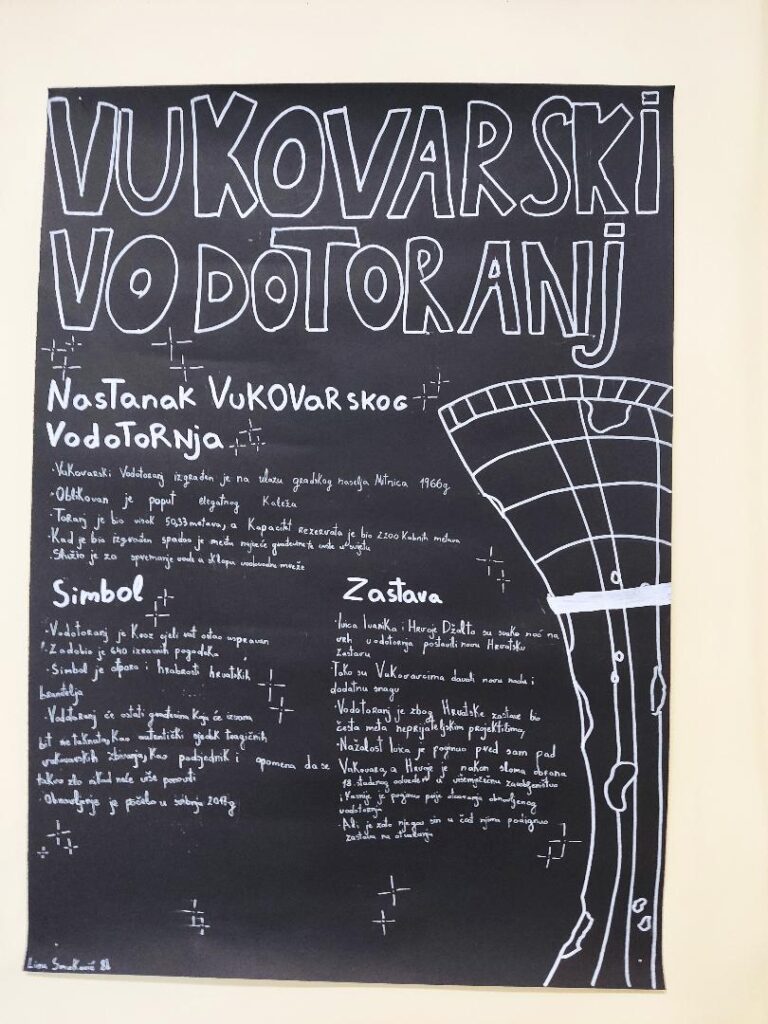 VUKOVARSKI
VODOTORANJ
Nastanak VUKOVARSKOG
VODOTORNJA
·Vukovarski Vodotoranj izgrađen je na ulazu gradskog naselja Mitnica 1966g
·Oblikovan je poput elegatnog Kaleža
·Toranj je bio visok 50,33 metava, a Kapacitet rezervata je bio 2200 Kubnih metava
·Kad je bio izgrađen spadao je među najveće građevine te vrste u svijetu
·Služio je za spremanje vode u sklopu vodovodne mreže
Simbol
·Vodotoranj je Kroz cijeli rat ostao uspravan
·Zadobio je 640 izravnih pogodaka
·Simbol je otpora i hrabrosti hrvatskih
branitelja
Vodotoranj će ostati građevina Koja će izvana
bit netaknuta, Kao autentični svjedok tragičnih
vukovarskih zbivanja, Kao podsjednik i opomena da se
takvo zlo nikad neće više ponoviti
·Obnavljanje je počelo u svibnju 2017g
Zastava
·Ivica Ivanika i Hrvoje Džalto su svake noć na
vrh vodotornja postavili novu Hrvatsku
zastavu
Tako su Vukovarcima davali novu nadu i
dodatnu snagu
·Vodotoranj je zbog Hrvatske zastave bio
česta meta neprijateljskim projektilima,
·Nažalost Ivica je poginuo pred sam pad
Vukovara, a Hrvoje je nakon sloma obrana
18. studenog odveden u višemjesečno zarobljeništvo
i Kasnije je poginuo prije otvaranja obnovljenog
vodotornja
·Ali je zato njegov sin u čast njima podignuo
zastavu na otvaranju